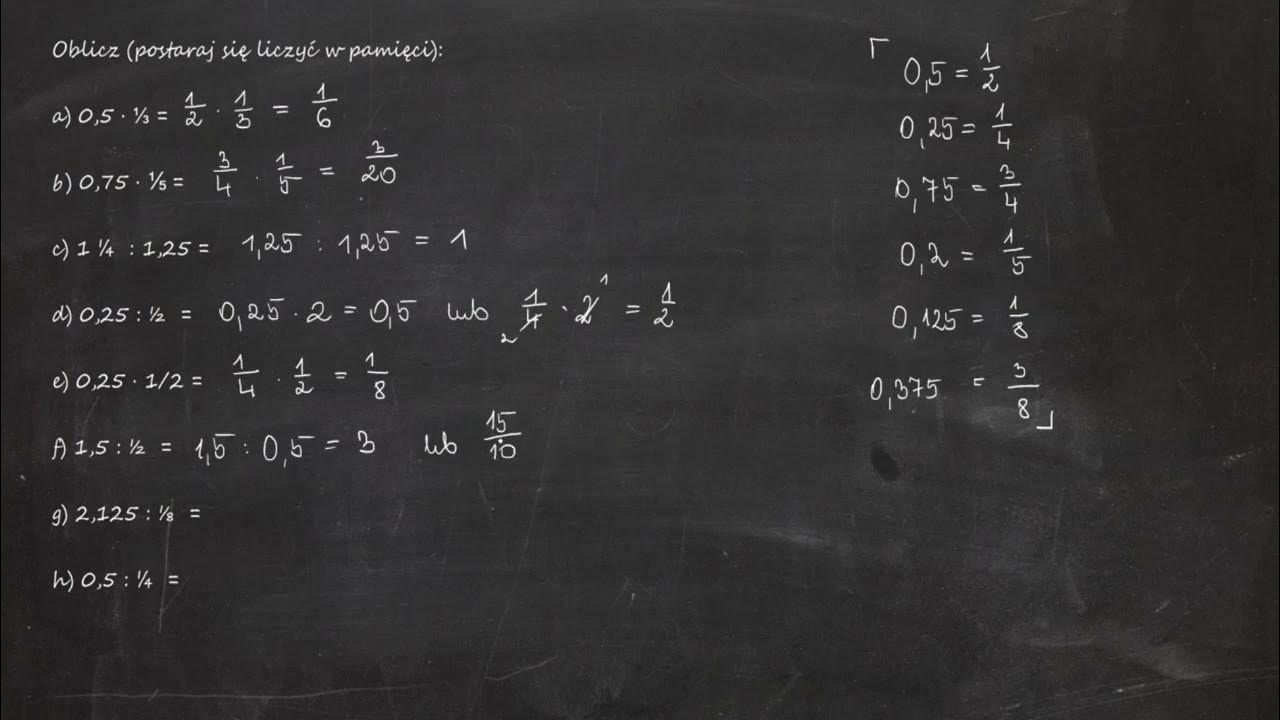 Oblicz (postaraj się liczyć w pamięci):
a) 0,5 · ⅓ = 1/2 · 1/3 = 1/6
b) 0,75 · ⅕ = 3/4 · 1/5 = 3/20
c) 1 ¼ : 1,25 = 1,25 : 1,25 = 1
d) 0,25 : ½ = 0,25 · 2 = 0,5 lub 1/4 2 · 2 1 = 1/2
e) 0,25 · 1/2 = 1/4 · 1/2 = 1/8
f) 1,5 : ½ = 1,5 : 0,5 = 3 lub 15/10
g) 2,125 : ⅛ =
h) 0,5 : ¼ =
0,5 = 1/2
0,25 = 1/4
0,75 = 3/4
0,2 = 1/5
0,125 = 1/8
0,375 = 3/8